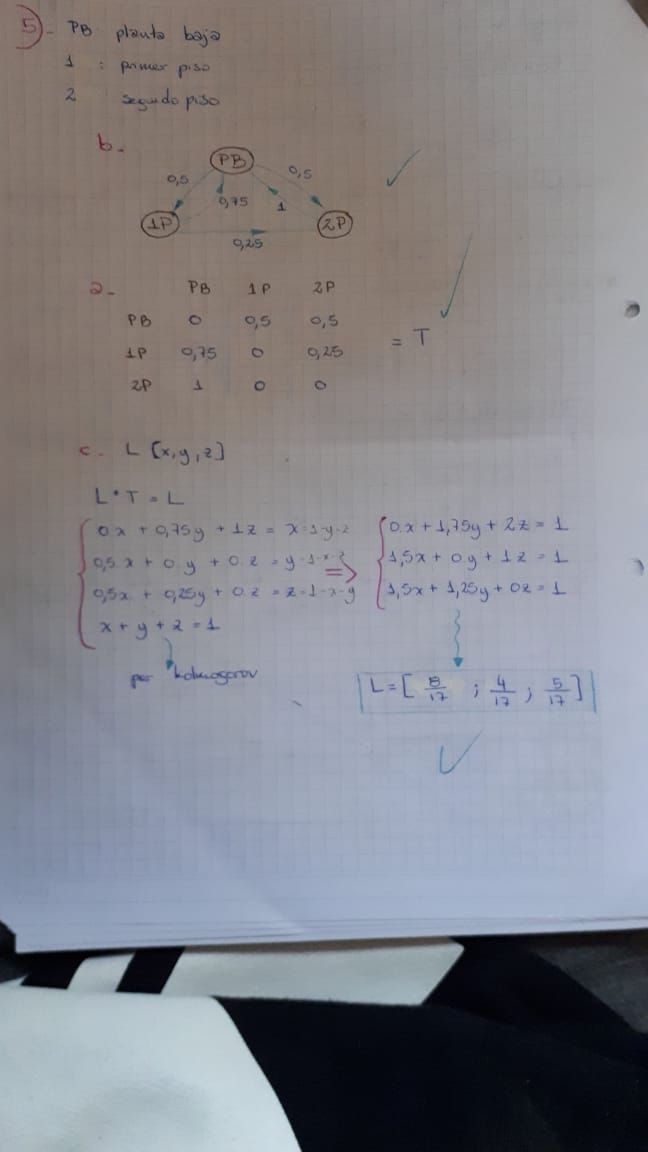 5)- PB: planta baja
1 : primer piso
2 segundo piso
b.
PB
0,5 0,5
0,75 1
1P 2P
0,25
a- PB 1P 2P
PB 0 0,5 0,5
1P 0,75 0 0,25 = T
2P 1 0 0
c. L [x,y,z]
L*T = L
0x + 0,75y + 1z = x=1-y-z
0,5x + 0y + 0z = y=1-x-z
0,5x + 0,25y + 0z = z=1-x-y
x + y + z = 1
por kolmogorov
=>
0x + 1,75y + 2z = 1
1,5x + 0y + 1z = 1
1,5x + 1,25y + 0z = 1
L=[ 8/17 ; 4/17 ; 5/17 ]